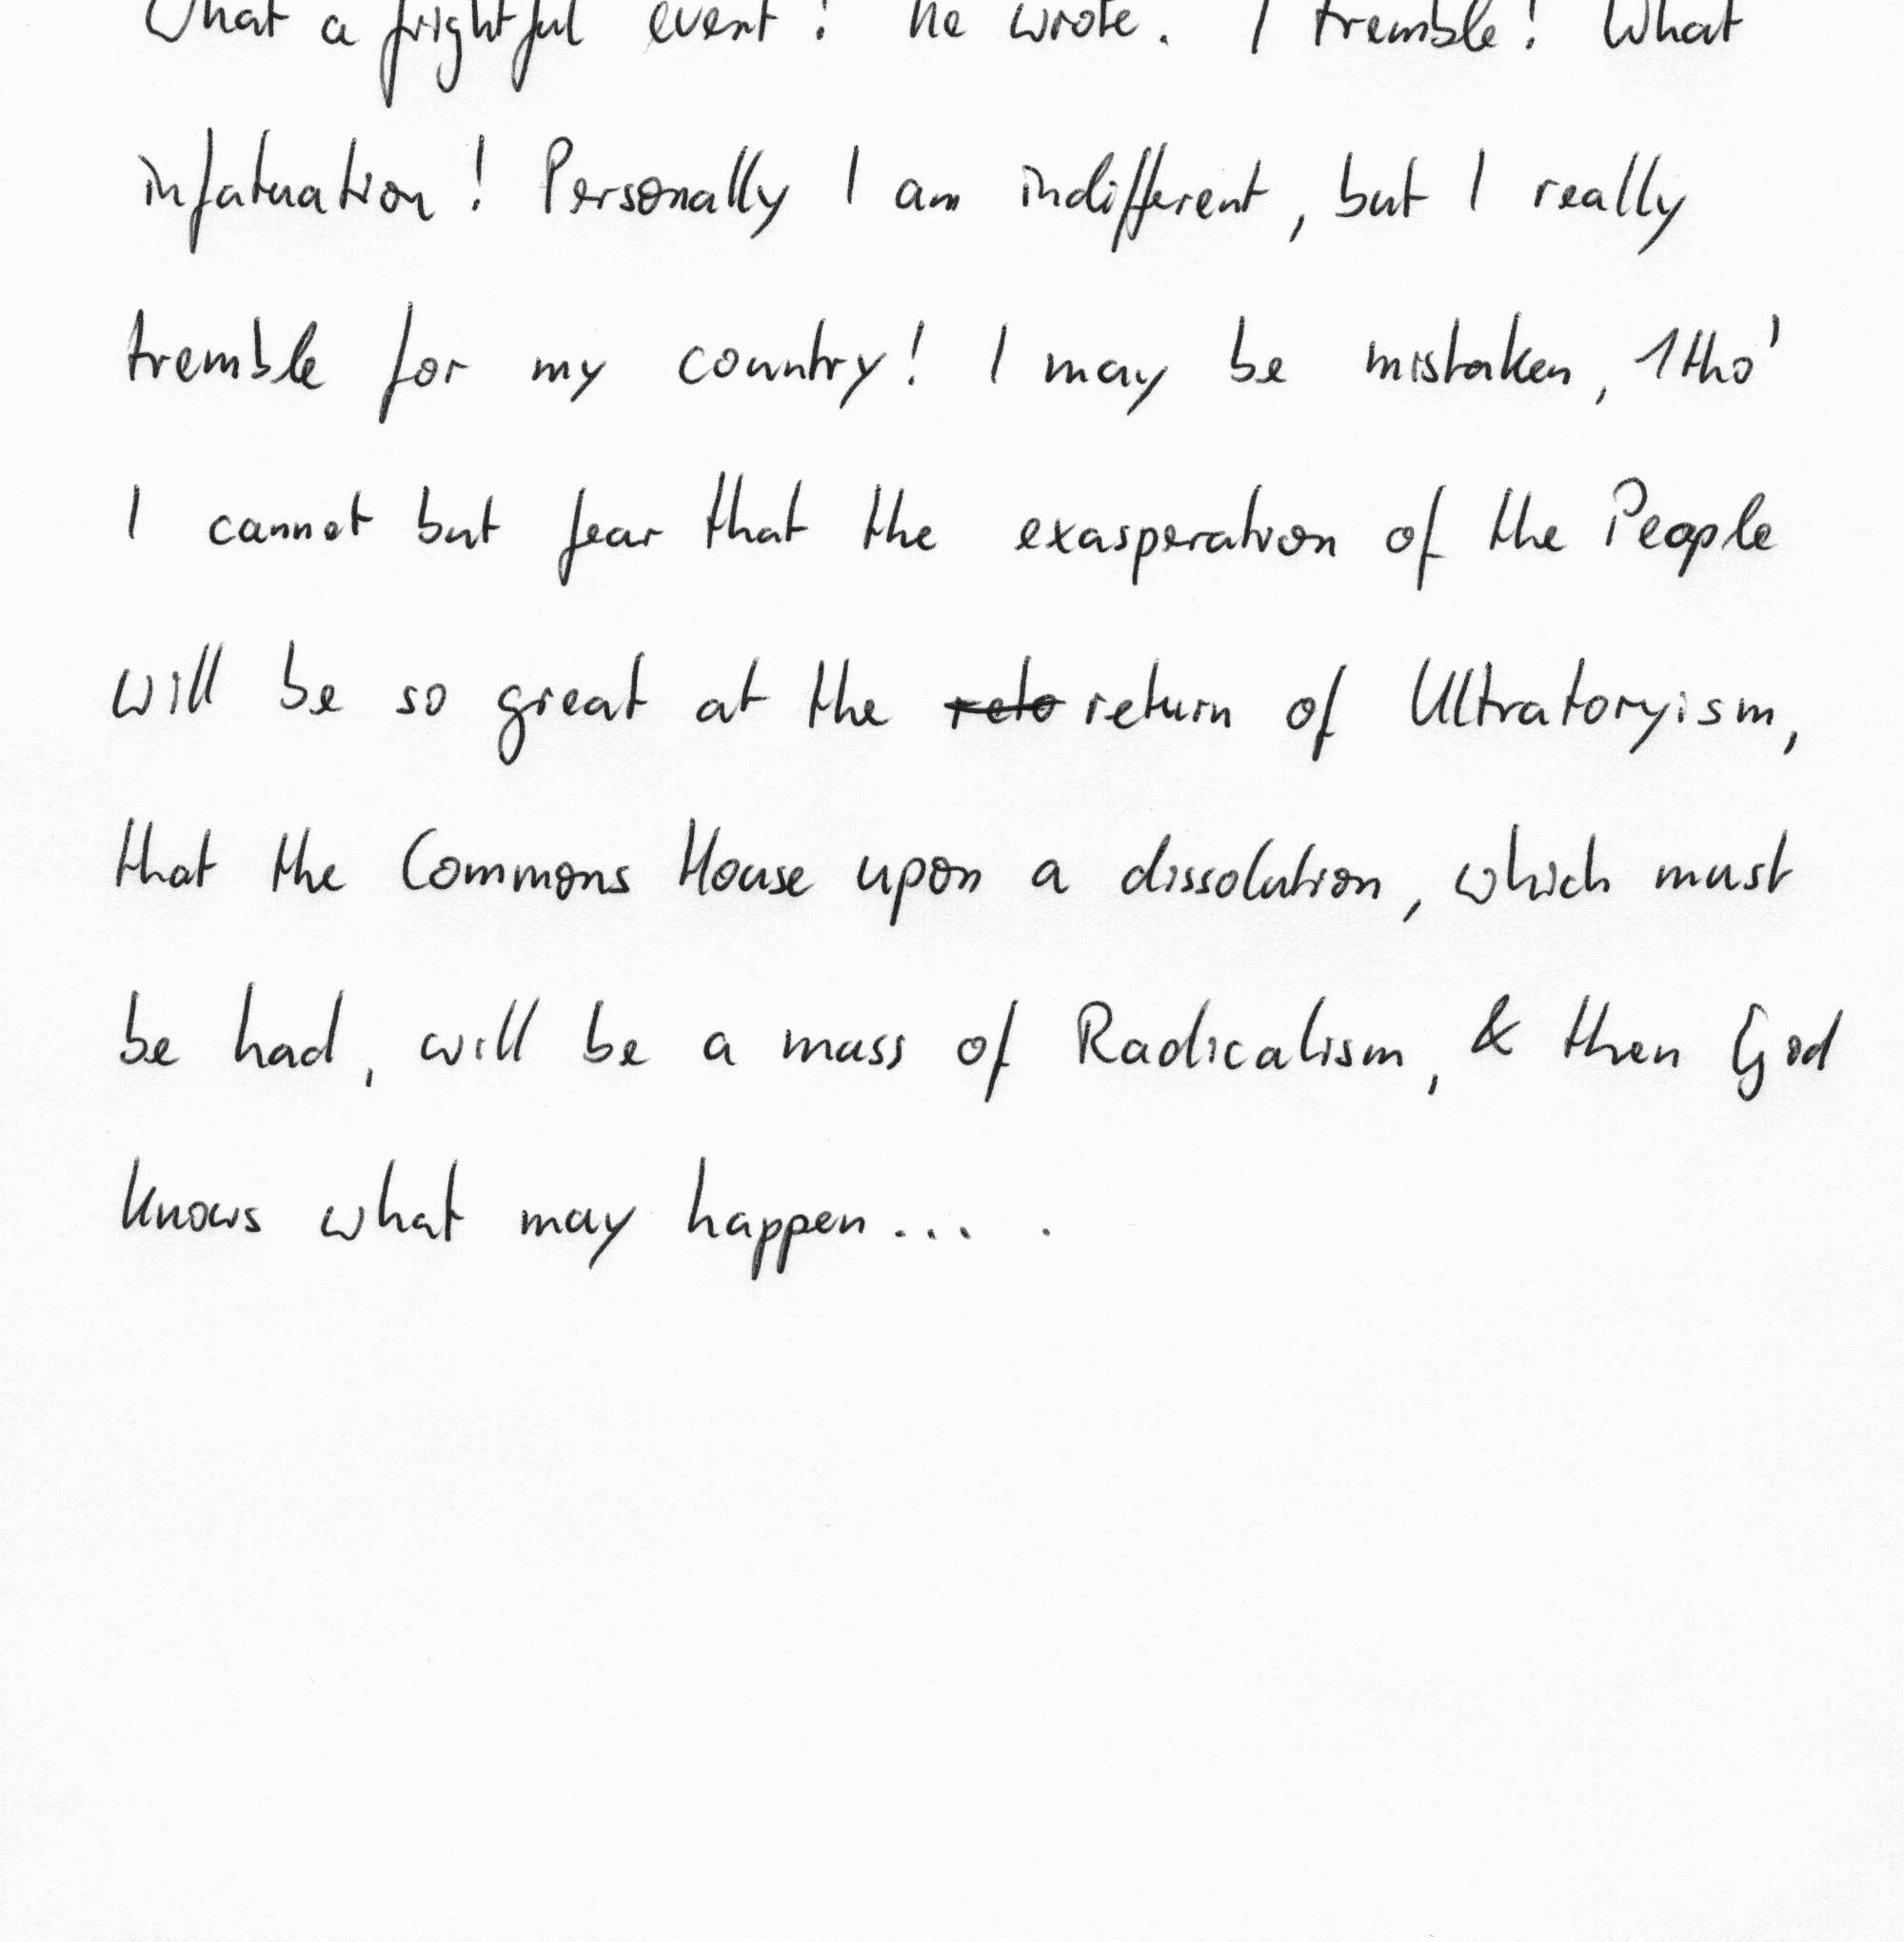 What a frightful event! he wrote. I tremble! What
infatuation! Personally I am indifferent, but I really
tremble for my country! I may be mistaken, 1tho'
I cannot but fear that the exasperation of the People
will be so great at the reto return of Ultratoryism,
that the Commons House upon a dissolution, which must
be had, will be a mass of Radicalism, & then God
knows what may happen... .